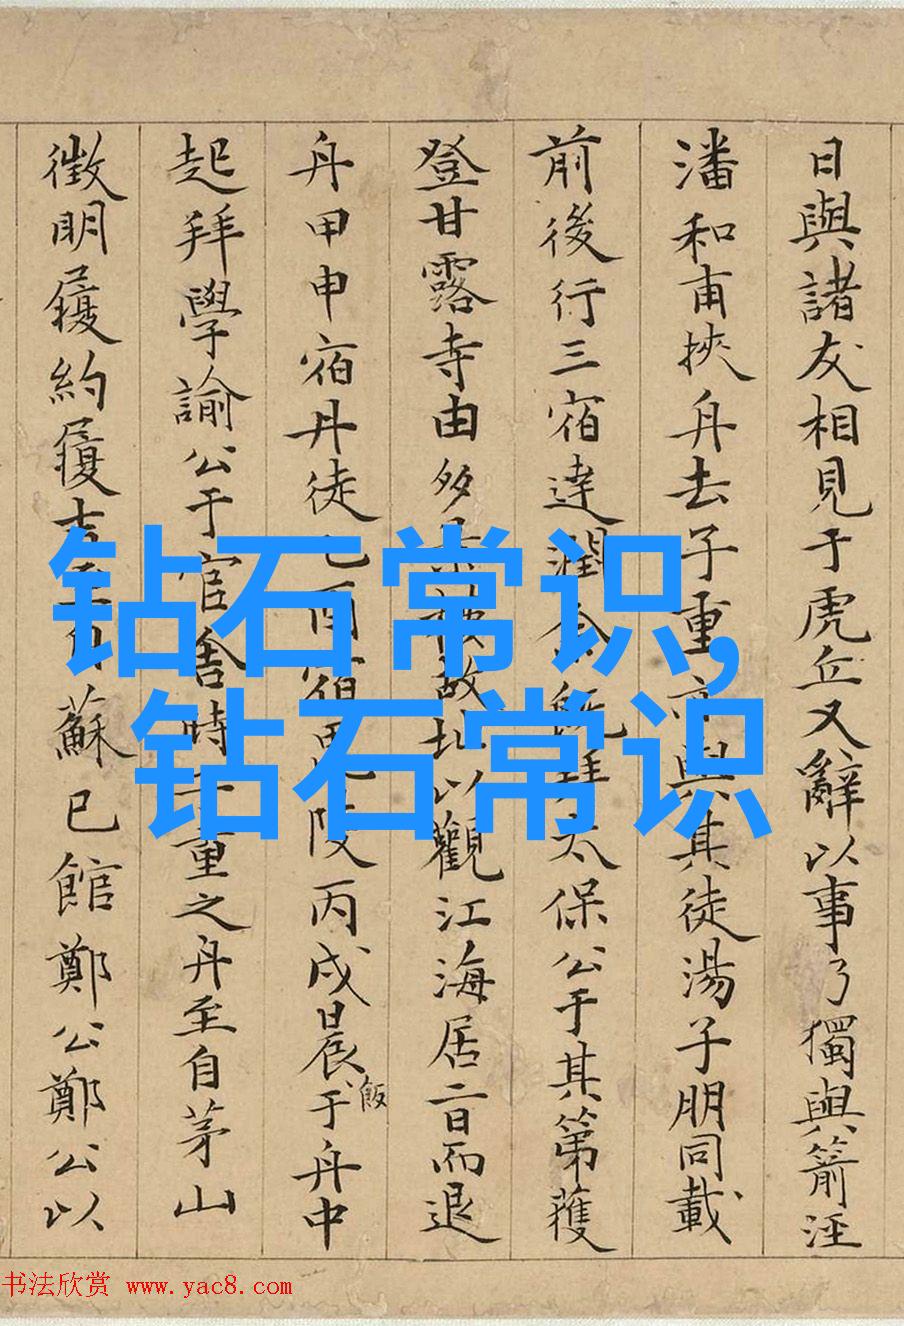 日與諸友相見于虎丘又辭以事乃獨與箭涇
潘和甫挾舟去子重亦與其徒湯子朋同載
前後行三宿達潤人太保公于其第獲
登甘露寺由多故址以觀江海居二日而退
舟甲申宿丹徒乙酉宿陵丙戌晨飯于舟中
起拜學諭公于官舍時子重之舟至自茅山
徵明履約履吉蘇已館鄭公鄭公以
钻石常识,
钻石常识
书法欣赏 www.yac8.com